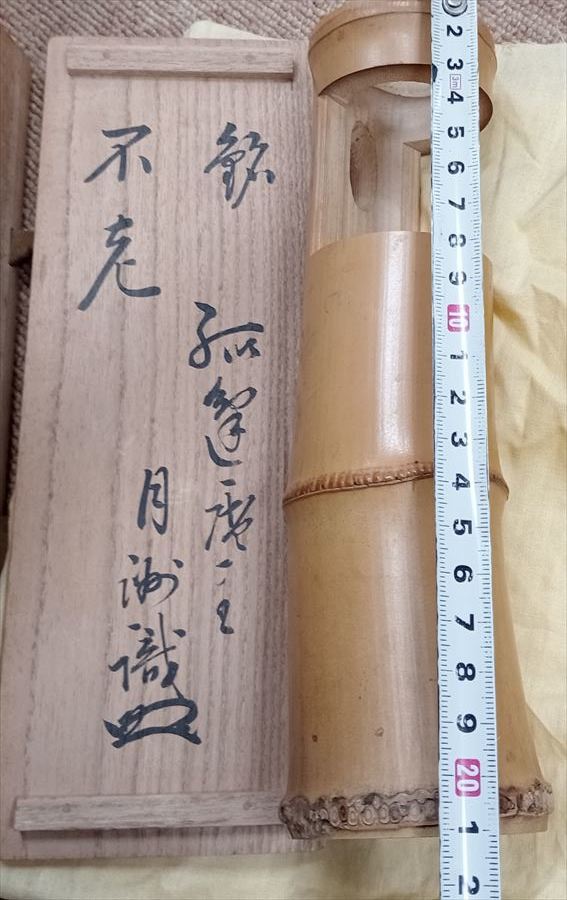 銘
不老
孤篷庵主
月洲識
2 3 3m 4 5 6 7 8 9 10 1 2 3 4 5 6 7 8 9 20 1 2